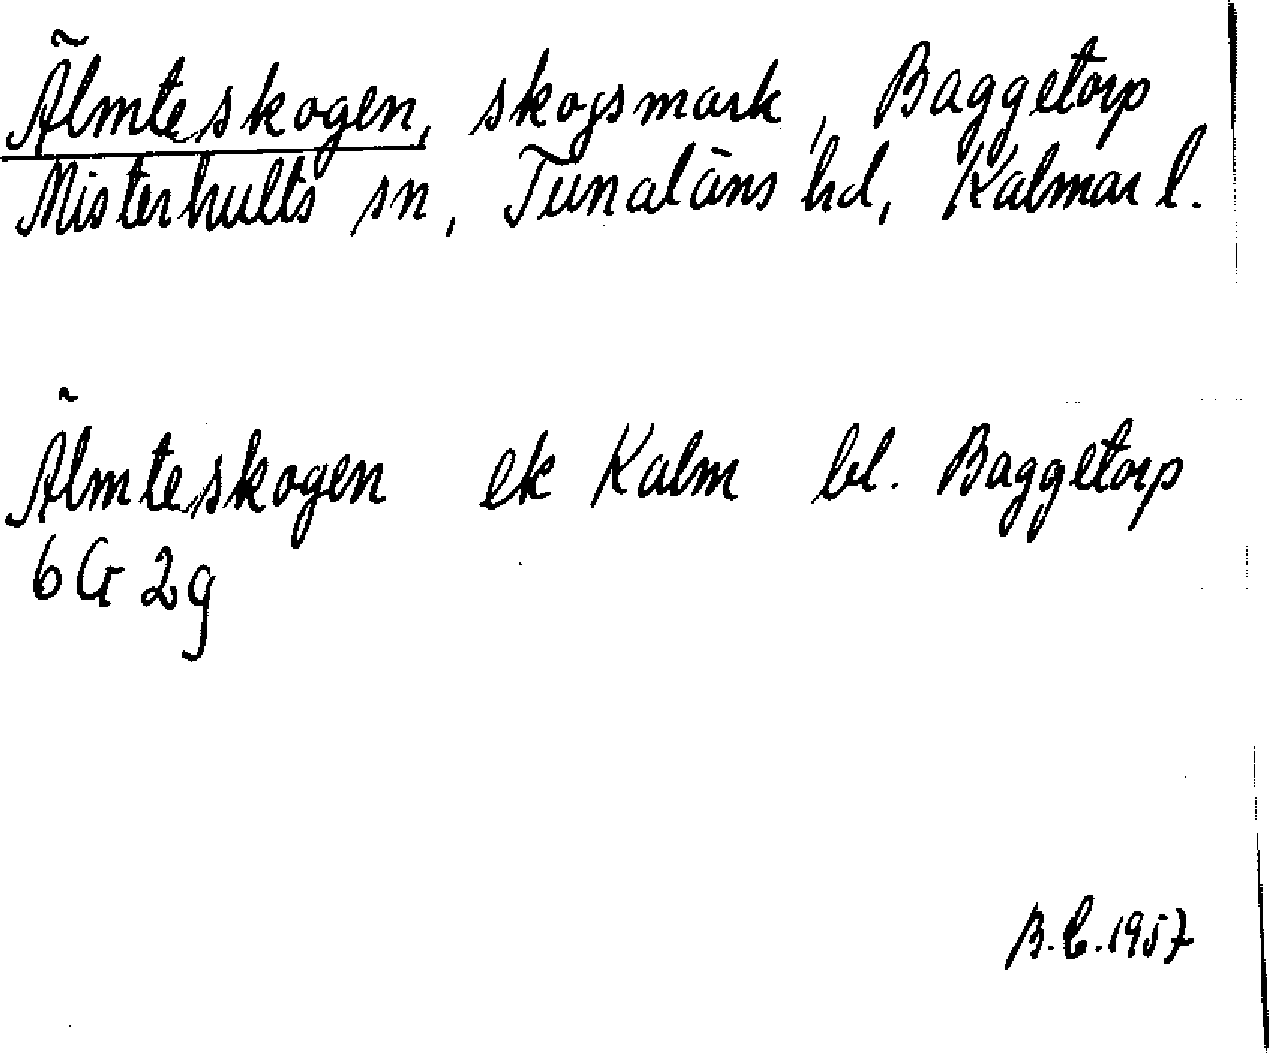 Älmteskogen, skogsmark, Baggetorp
Misterhults sn, Tunaläns hd, Kalmar l.
Älmteskogen ek Kalm bl. Baggetorp
6 G 2g
B.C. 1957